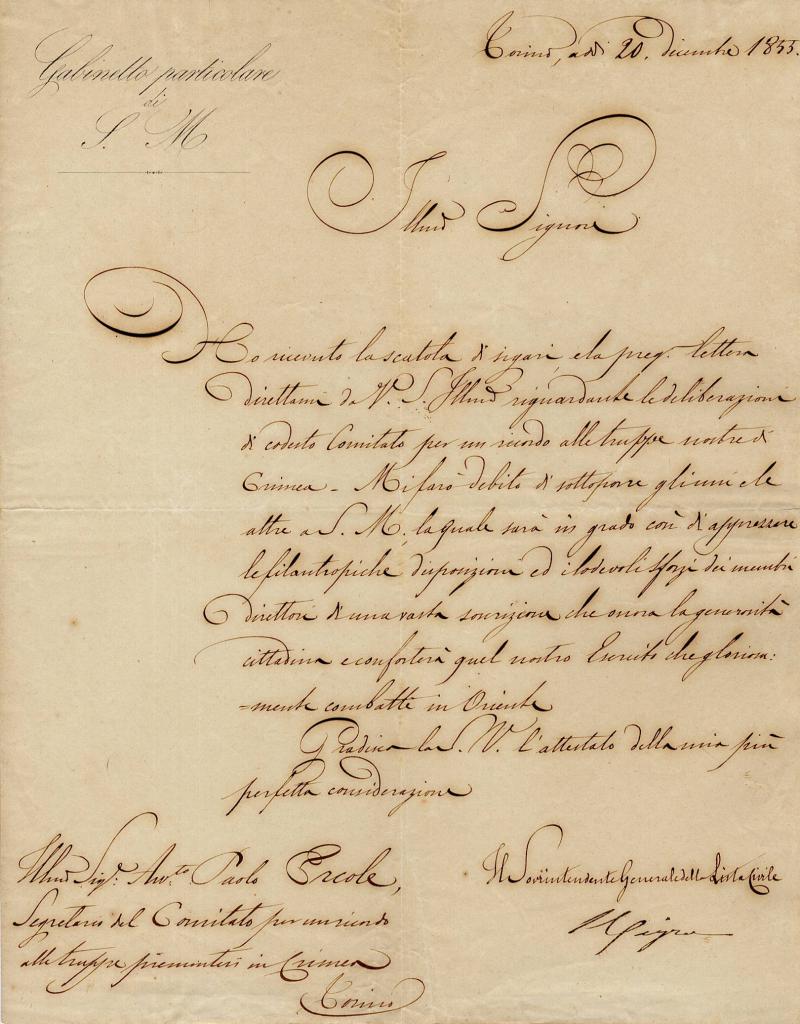 Gabinetto particolare
di
S. M
Torino, addì 20. dicembre 1855.
Illmo Signore
Ho ricevuto la scatola di sigari, e la preg. lettera
direttami da V. S. Illma riguardante le deliberazioni
di codesto Comitato per un ricordo alle truppe nostre di
Crimea - Mi farò debito di sottoporre gli uni e le
altre a S. M. la quale sarà in grado così di apprezzare
le filantropiche disposizioni ed i lodevoli sforzi dei membri
direttori di una vasta soscrizione che onora la generosità
cittadina e conforterà quel nostro Esercito che gloriosa:
=mente combatte in Oriente
Gradisca la S. V. l'attestato della mia più
perfetta considerazione
Il Sovrintendente Generale della Lista Civile
Nigra
Illmo Sig. Avv.to Paolo Ercole,
Segretario del Comitato per un ricordo
alle truppe piemontesi in Crimea
Torino